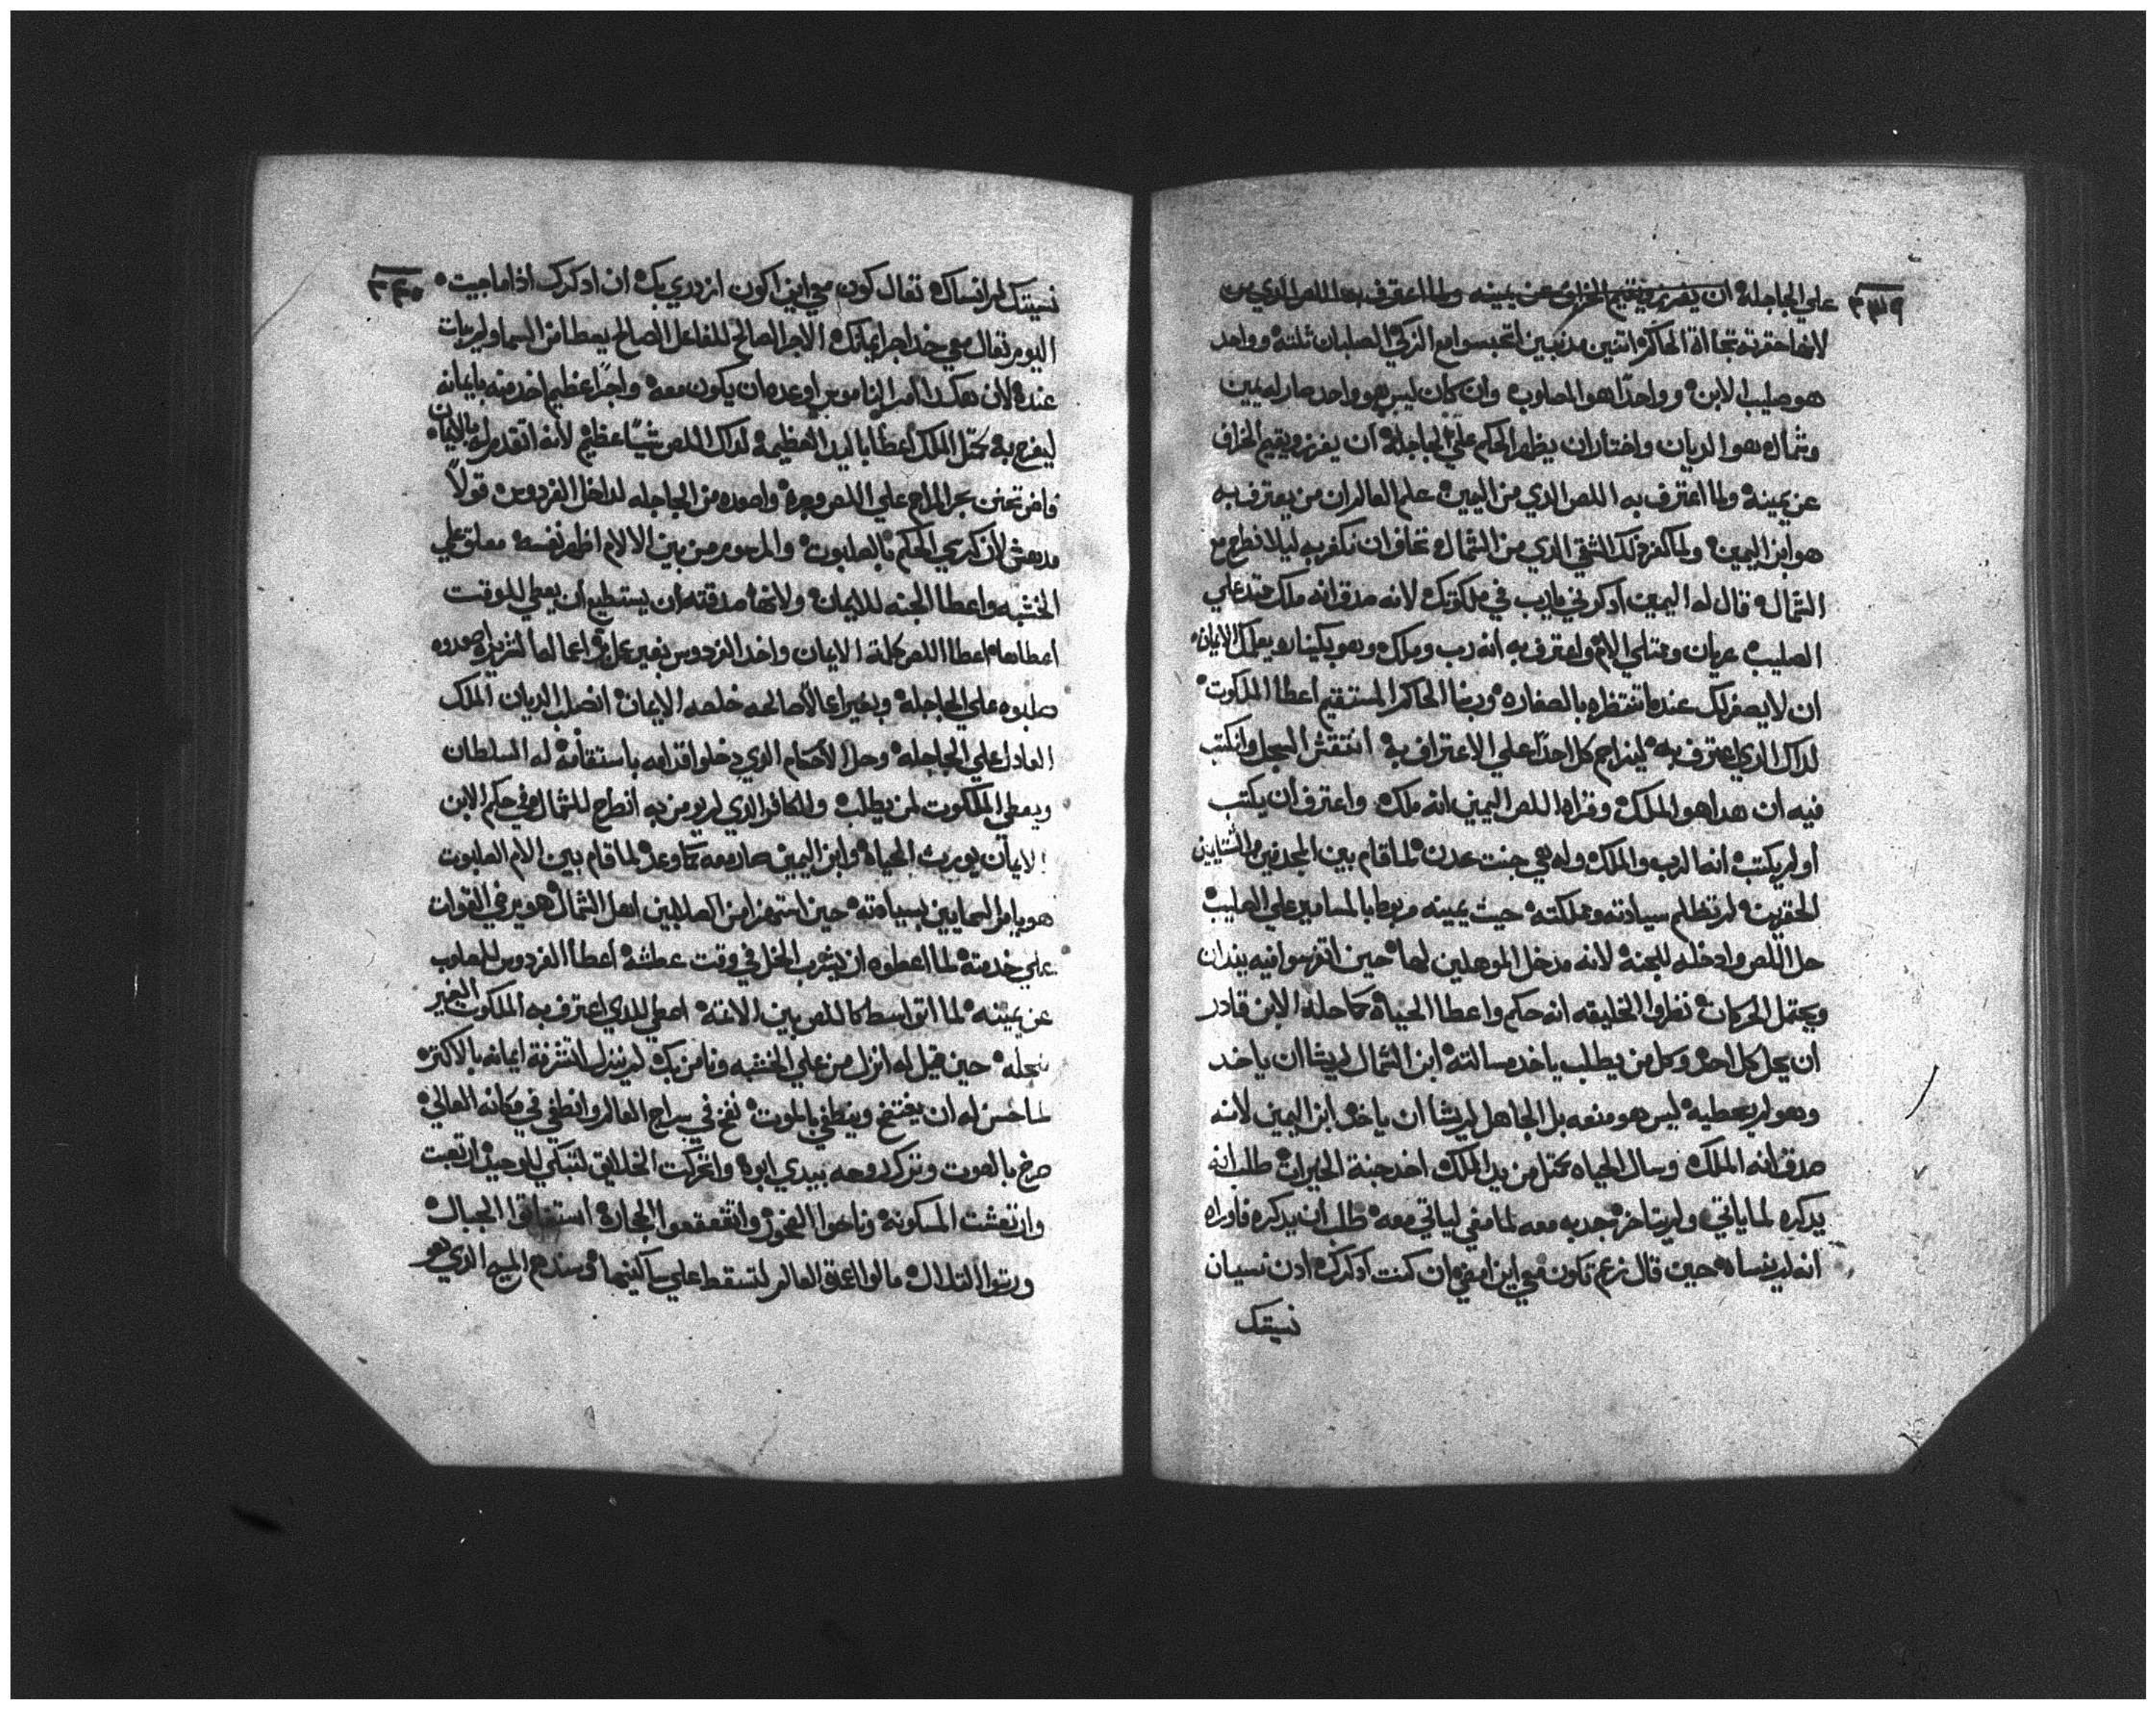 ٣٣٩
علي الجاجلة ان يفرز ويقيم الخراف عن يمينه ولما اعترف بهذا اللص الذي من
هو صليب الابن وواحدًا هو المصلوب وان كان ليس هو واحد صار له يمين
وشماله هو الديان واختار ان يظهر الحكم علي الجاجلة ان يفرز ويقيم الخراف
عن يمينه ولما اعترف به اللص الذي من اليمين علم العالم ان من يعترف به
هو ابن اليمين ولما كفر ذلك الشقي الذي من الشمال تخاف ان تكفر به ليلا تطرح مع
الشمال قال له اليمين ادكرني يارب في ملكوتك لانه صدق انه ملك عند علي
الصليب عريان وممتلي الام واعترف به انه رب وملك وهو يعلمك الايمان
ان لا يصغر لك عندما تنتظره بالصغاره وبهذا الحاكم المستقيم اعطا الملكوت
لداك الدي اعترف به ليزاحم كل احدًا علي الاعتراف به انتقش السجل وانكتب
فيه ان هدا هو الملك وقراه اللص اليمين انه ملك واعترف ان يكتب
او لم يكتب انه الرب والملك وله هي جنت عدن لما قام بين المجدفين والشتايمين
الحقيرين لم تظلم سيادته ومملكته حيث يمينه مربوطا بالمسامير علي الصليب
حل اللص وادخله للجنه لانه مدخل الموهلين لها حين
ويحتمل الحركات نظروا الخليقه انه حكم واعطا الحياه كما حله الابن قادر
ان يحل كل احد وكل من يطلب ياخد مسالته ابن الشمال لم يشا ان ياخد
وهو لم يعطيه ليس هو منعه بل الجاهل لم يشا ان ياخد ابن اليمين لانه
صدق انه الملك وسال الحياه من يد الملك اخد جنة الخيرات طلب انه
يدكره لما ياتي ولم يتاخر جدبه معه لما مضي لياتي معه طلب ان يدكره فاوراه
انه لم ينساه حين قال تكون معي اين امضي ان كنت ادكرك ادن نسيان
نسيتك
٣٤٠
نسيتك لم انساك تعال كون معي اين اكون ان ادكرك اذا ما جيت
اليوم تعال معي خد اجر ايمانك الاجر الصالح للفاعل الصالح يعطا من السما ولم يبات
عنده لان هكدا امر الناموس اوعده ان يكون معه واجرًا عظيم اخد منه بايمانه
ليفرح به الملك اعطا باليد العظيمه لداك اللص شيًا عظيم لانه اتقدم له بالايمان
علي اللص وجره واصعده من الجاجله لداخل الفردوس قولًا
مدهش لان كرسي الحكم بالصلبوت من بين الالام اظهر نفسه معلق علي
الخشبه واعطا الجنه للايمان ولانها صدقته ان يستطيع ان يعطي للوقت
اعطاها اعطا اللص كلمة الايمان واخد الفردوس بغير عمل
صلبوه علي الجاجله وبغير اعمالًا صالحه خلصه الايمان انصلب الديان الملك
العادل علي الجاجله وحل الاحكام الدي دخلوا قدامه باستقامة له السلطان
ويعطي الملكوت لمن يطلب والكافر الدي لم يومن به انطرح للشمال وفي حكم الابن
الايمان يورث الحياه وابن اليمين صار معه كما وعد لما قام بين الام الصلبوت
هو يامر السمايين بسيادته حين استهزا من الصلابين اهل الشمال هو في القوات
علي خدمته لما اعطوه ان يشرب الخل في وقت عطشه اعطا الفردوس للمصلوب
عن يمينه لما بين الاتمة اعطي للدي اعترف به الملكوت الغير
حين قيل له انزل من علي الخشبه ونامن بك لم ينزل ايمانه بالاكتر
لما حسن له ان وينطفي بالموت نفخ في سراج العالم وانطفي في مكانه العالي
صرخ بالصوت وترك روحه بيدي ابوه واتحركت الخلايق لتبكي للوحيد ارتعبت
وارتعشت المسكونه وناحوا الصخور واتقعقعوا الحجاره استفاقوا الجبال
التلال مالوا اعمق العالم لتسقط علي ساكنيها الدي هو